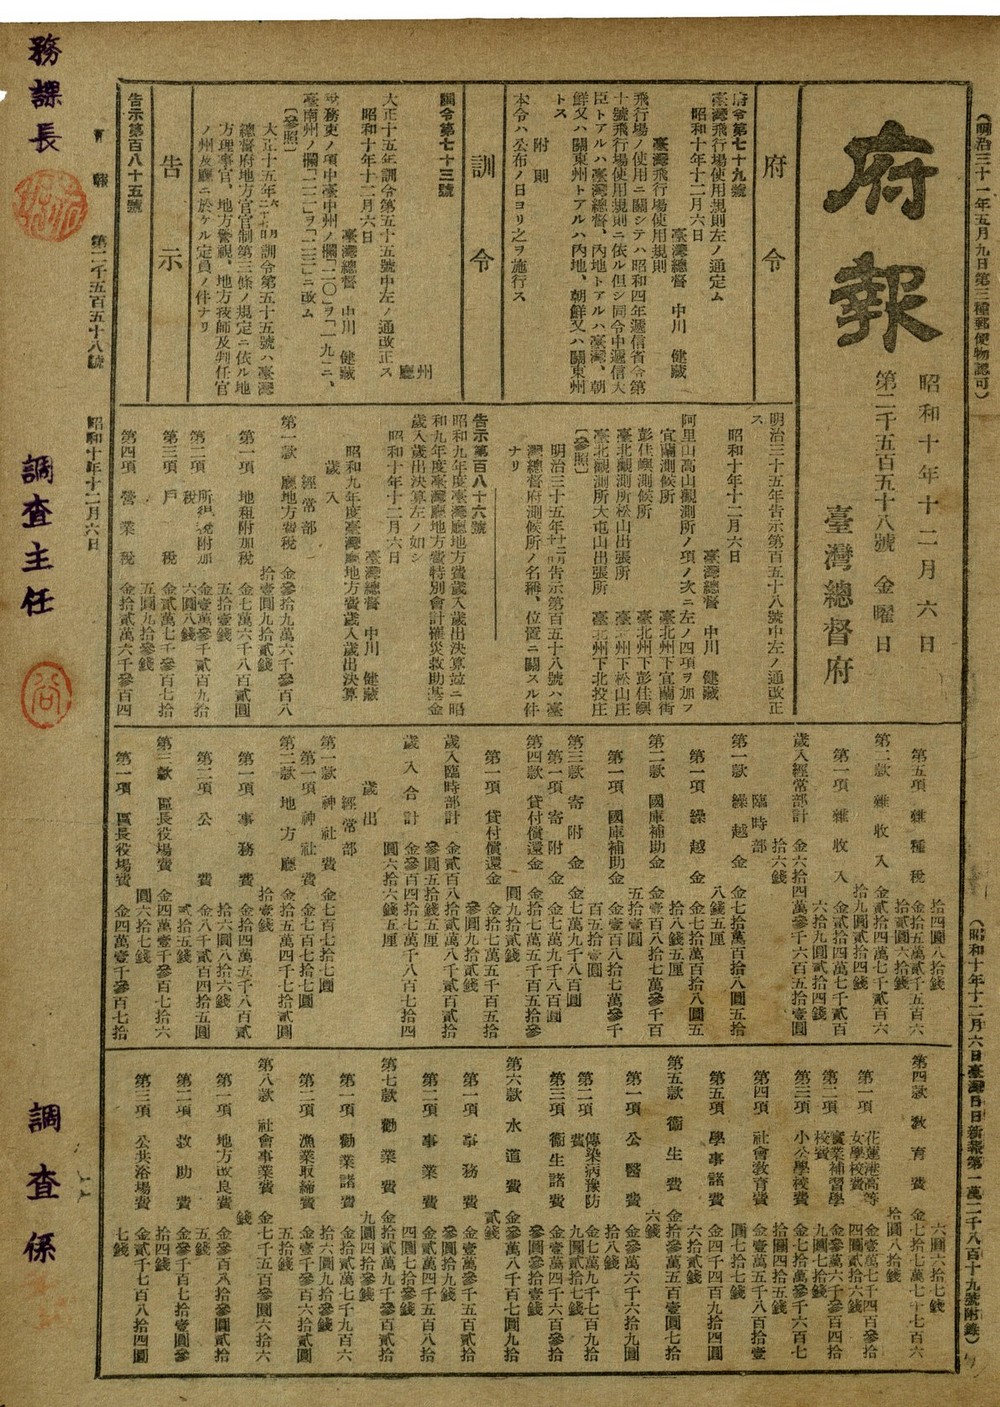 (明治三十一年五月九日第三種郵便物認可)
(昭和十年十二月六日臺灣日日新報第一萬二千八百十九號附錄)
府報
昭和十年十二月六日
第二千五百五十八號　金曜日
臺灣總督府
府令
府令第七十九號
臺灣飛行場使用規則左ノ通定ム
昭和十年十二月六日
臺灣總督　中川　健藏
臺灣飛行場使用規則
飛行場ノ使用ニ關シテハ昭和四年遞信省令第
十號飛行場使用規則ニ依ル但シ同令中遞信大
臣トアルハ臺灣總督、內地トアルハ臺灣、朝
鮮又ハ關東州トアルハ內地、朝鮮又ハ關東州
トス
附則
本令ハ公布ノ日ヨリ之ヲ施行ス
訓令
訓令第七十三號
州
廳
大正十五年訓令第五十五號中左ノ通改正ス
昭和十年十二月六日
臺灣總督　中川　健藏
稅務吏ノ項中臺中州ノ欄「二〇」ヲ「一九」ニ、
臺南州ノ欄「二二」ヲ「二三」ニ改ム
〔參照〕
大正十五年訓令第五十五號ハ臺灣
總督府地方官官制第三條ノ規定ニ依ル地
方理事官、地方警視、地方技師及判任官
ノ州及廳ニ於ケル定員ノ件ナリ
告示
告示第百八十五號
明治三十五年告示第百五十八號中左ノ通改正
ス
昭和十年十二月六日
臺灣總督　中川　健藏
阿里山高山觀測所ノ項ノ次ニ左ノ四項ヲ加フ
宜蘭測候所　臺北州下宜蘭街
彭佳嶼測候所　臺北州下彭佳嶼
臺北觀測所松山出張所　臺北州下松山庄
臺北觀測所大屯山出張所　臺北州下北投庄
〔參照〕
明治三十五年告示第百五十八號ハ臺
灣總督府測候所ノ名稱、位置ニ關スル件
ナリ
告示第百八十六號
昭和九年度臺灣廳地方費歲入歲出決算竝ニ昭
和九年度臺灣廳地方費特別會計罹災救助基金
歲入歲出決算左ノ如シ
昭和十年十二月六日
臺灣總督　中川　健藏
昭和九年度臺灣廳地方費歲入歲出決算
歲入
經常部
第一款　廳地方費稅　金參拾九萬六千參百八
拾壹圓九拾貳錢
第一項　地租附加稅　金七萬六千八百貳圓
五拾壹錢
第二項　所得稅附加
稅　金壹萬參千貳百九拾
六圓八錢
第三項　戶稅　金貳萬七千參百七拾
五圓九拾參錢
第四項　營業稅　金拾貳萬六千參百四
拾四圓八拾錢
第五項　雜種稅　金拾五萬貳千五百六
拾貳圓六拾錢
第二款　雜收入　金貳拾四萬七千貳百六
拾九圓貳拾四錢
第一項　雜收入　金貳拾四萬七千貳百
六拾九圓貳拾四錢
歲入經常部計　金六拾四萬參千六百五拾壹圓
拾六錢
臨時部
第一款　繰越金　金七拾萬百拾八圓五拾
八錢五厘
第一項　繰越金　金七拾萬百拾八圓五
拾八錢五厘
第二款　國庫補助金　金壹百八拾七萬參千百
五拾壹圓
第一項　國庫補助金　金壹百八拾七萬參千
百五拾壹圓
第三款　寄附金　金七萬九千八百圓
第一項　寄附金　金七萬九千八百圓
第四款　貸付償還金　金拾七萬五千百五拾參
圓九拾貳錢
第一項　貸付償還金　金拾七萬五千百五拾
參圓九拾貳錢
歲入臨時部計　金貳百八拾貳萬八千貳百貳拾
參圓五拾錢五厘
歲入合計　金參百四拾七萬千八百七拾四
圓六拾六錢五厘
歲出
經常部
第一款　神社費　金七百七拾七圓
第一項　神社費　金七百七拾七圓
第二款　地方廳　金拾五萬四千七拾貳圓
拾壹錢
第一項　事務費　金拾四萬五千八百貳
拾六圓八拾六錢
第二項　公費　金八千貳百四拾五圓
貳拾五錢
第三款　區長役場費　金四萬壹千參百七拾六
圓六拾七錢
第一項　區長役場費　金四萬壹千參百七拾
六圓六拾七錢
第四款　敎育費　金七拾七萬七千七百六
拾圓八拾錢
第一項　花蓮港高等
女學校費　金壹萬七千四百參拾
四圓貳拾六錢
第二項　實業補習學
校費　金參萬六千參百四拾
九圓七拾錢
第三項　小公學校費　金七拾萬參千六百七
拾圓四拾五錢
第四項　社會敎育費　金壹萬五千八百拾壹
圓七拾七錢
第五項　學事諸費　金四千四百九拾四圓
六拾貳錢
第五款　衞生費　金拾參萬五百壹圓七拾
六錢
第一項　公醫費　金參萬六千六拾九圓
拾八錢
第二項　傳染病豫防
費　金七萬九千七百九拾
九圓貳拾七錢
第三項　衞生諸費　金壹萬四千六百參拾
參圓參拾壹錢
第六款　水道費　金參萬八千百七圓九拾
貳錢
第一項　事務費　金壹萬參千五百貳拾
參圓拾九錢
第二項　事業費　金貳萬四千五百八拾
四圓七拾參錢
第七款　勸業費　金拾貳萬八千貳百七拾
九圓四拾參錢
第一項　勸業諸費　金拾貳萬七千九百六
拾六圓九拾參錢
第二項　漁業取締費　金壹千參百六拾貳圓
五拾錢
第八款　社會事業費　金七千五百參圓六拾六
錢
第一項　地方改良費　金參百八拾參圓貳拾
五錢
第二項　救助費　金參千百七拾壹圓參
拾四錢
第三項　公共浴場費　金貳千七百八拾四圓
七錢
府報　第二千五百五十八號　昭和十年十二月六日
務課長
調查主任
調查係